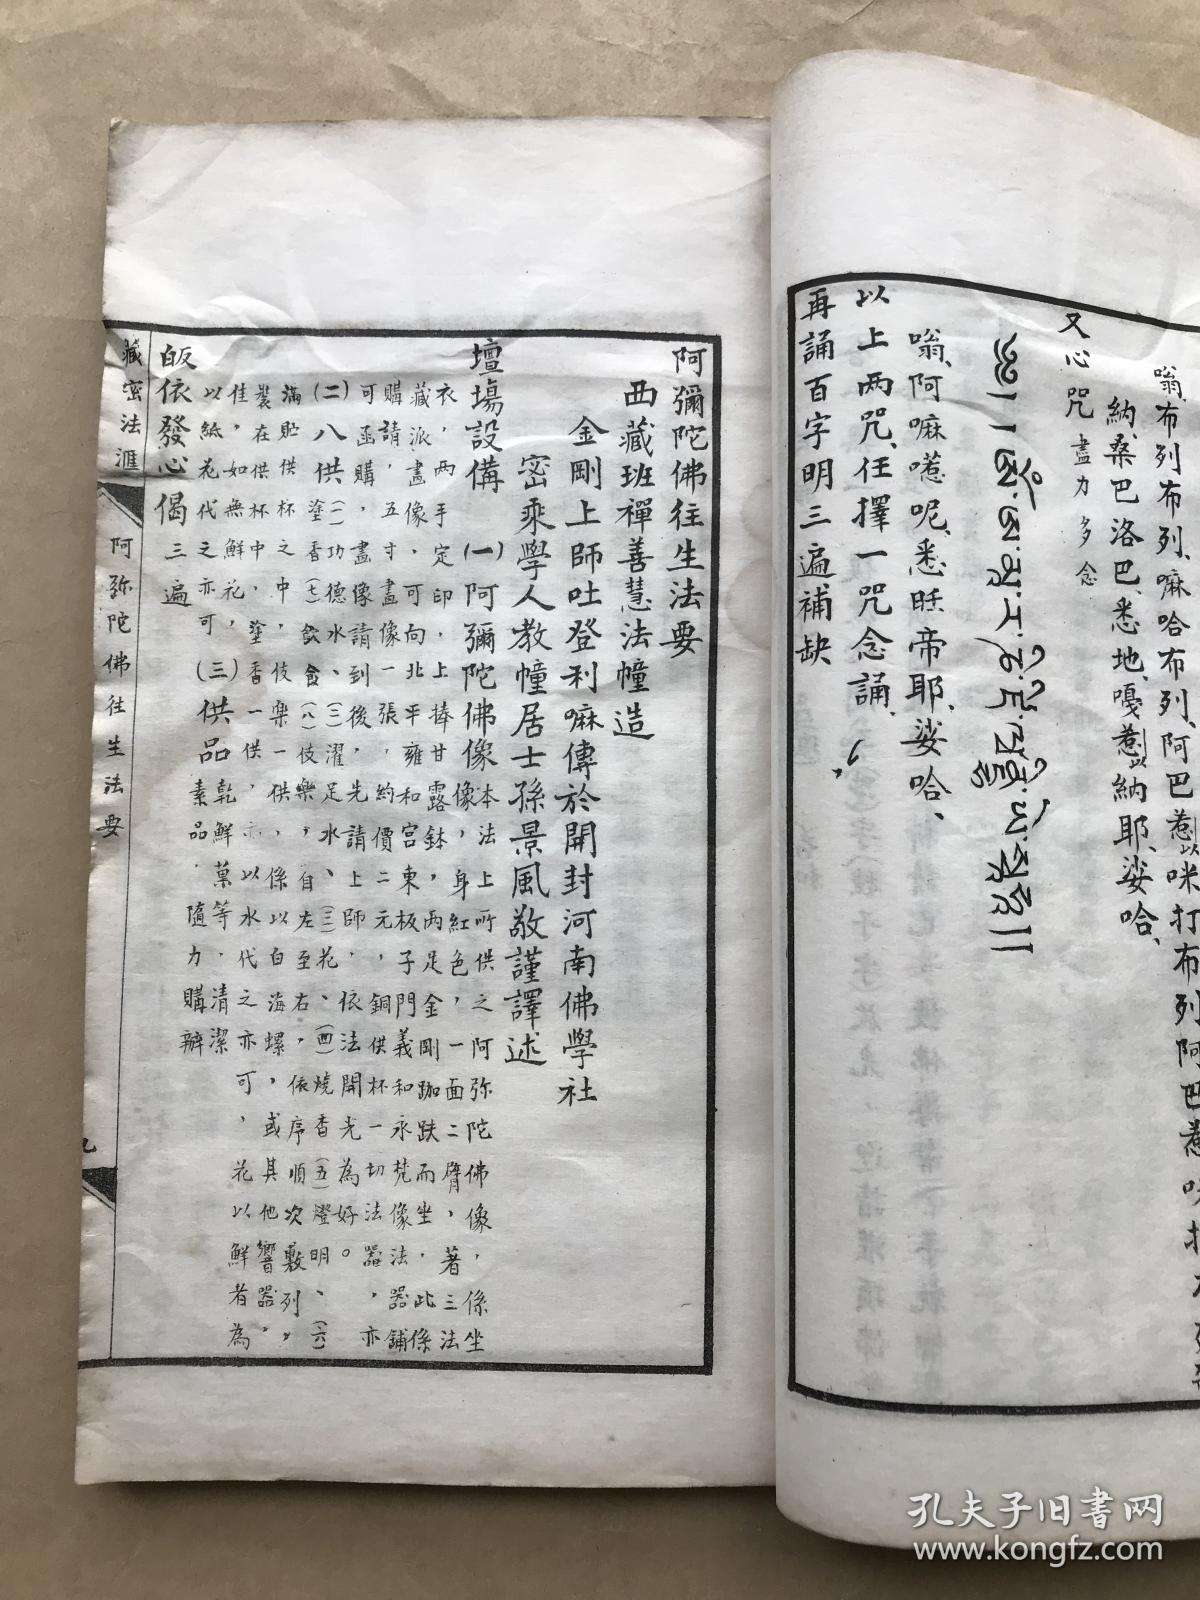 嗡、布列布列、嘛哈布列、阿巴惹以咪打布列阿巴惹
納、桑巴洛巴、悉地、嘎惹以納耶、娑哈、
又心咒 盡力多念
嗡、阿嘛惹呢、悉眰帝耶、娑哈、
以上两咒、任擇一咒念誦、
再誦百字明三遍補缺
阿彌陀佛往生法要
西藏班禪善慧法幢造
金剛上師吐登利嘛傳於開封河南佛學社
密乘學人教幢居士孫景風敬謹譯述
壇場設備 (一)阿彌陀佛像 本法上所供之阿弥陀佛像，係坐
像，身紅色，一面二臂，著三法
衣，两手定印，上捧甘露鉢，两足金剛跏趺而坐，此係
藏派畫像，可向北平雍和宮東板子門義和永梵像法器舖
購請，五寸畫像一張，約價二元，銅供杯一切法器，亦
可函購，畫像請到後，先請上師，依法開光為好。
(二)八供 (一)功德水、(二)濯足水、(三)花、(四)燒香(五)燈明、(六)
塗香(七)飲食(八)伎樂，自左至右，依序順次敷列，
滿貯供杯之中，伎樂一供，係以白海螺，或其他響器，
裝在供杯中，塗香一供，亦以水代之亦可，花以鮮者為
佳，如無鮮花，
以紙花代之亦可 (三)供品 乾鮮菓等，清潔
素品，隨力購辦
皈依發心偈 三遍
藏密法滙 阿弥陀佛往生法要 九
孔夫子旧书网
www.kongfz.com